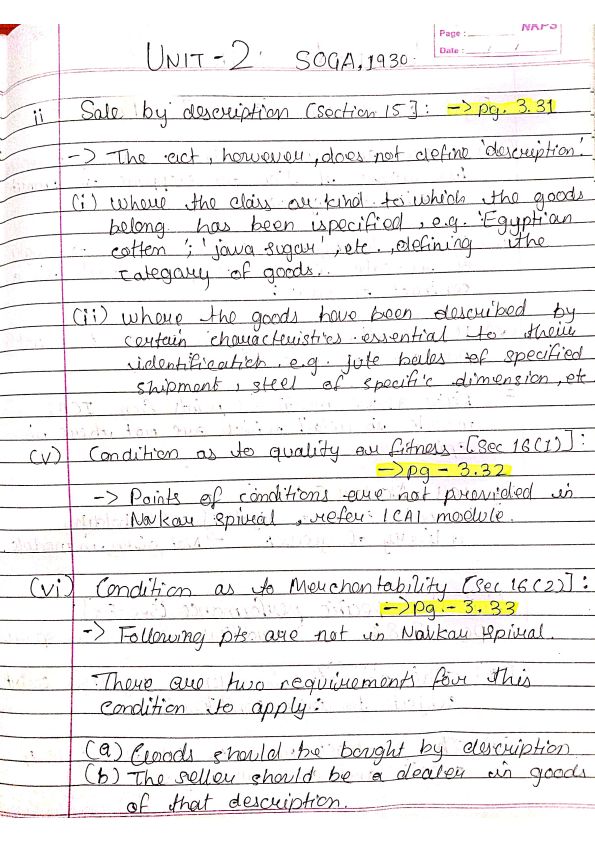 NKPS
Page :
Date :
UNIT - 2 SOGA, 1930.
ii Sale by description [Section 15] : -> pg. 3.31
-> The act, however, does not define 'description'.
(i) where the class or kind to which the goods
belong has been specified, e.g. 'Egyptian
cotton'; 'java sugar', etc., defining the
category of goods.
(ii) where the goods have been described by
certain characteristics essential to their
identification. e.g. jute bales of specified
shipment, steel of specific dimension, etc
(v) Condition as to quality or fitness. [Sec 16(1)] :
-> pg - 3.32
-> Points of conditions are not provided in
Navkar Spiral, refer ICAI module.
(vi) Condition as to Merchantability [Sec 16(2)] :
-> pg - 3.33
-> Following pts are not in Navkar spiral.
There are two requirements for this
condition to apply :
(a) Goods should be bought by description
(b) The seller should be a dealer in goods
of that description.